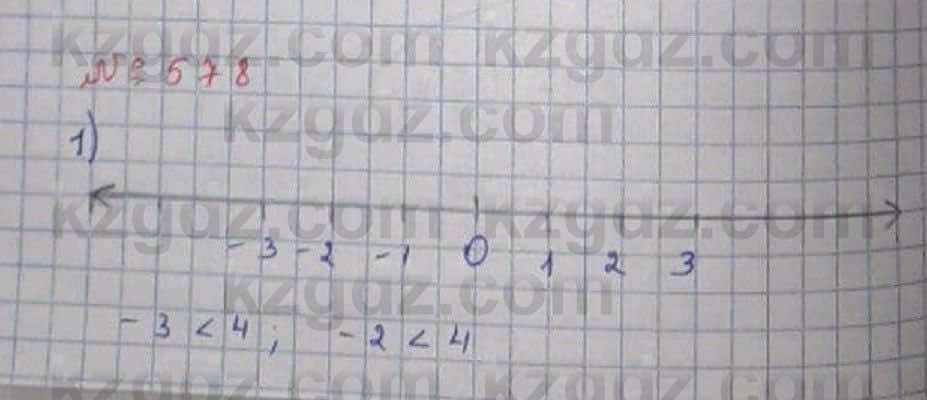 kzgdz.com kzgdz.com
№ 578
kzgdz.com
1)
kzgdz.com kzgdz.com
-3 -2 -1 0 1 2 3
kzgdz.com
-3 < 4; -2 < 4
kzgdz.com kzgdz.com